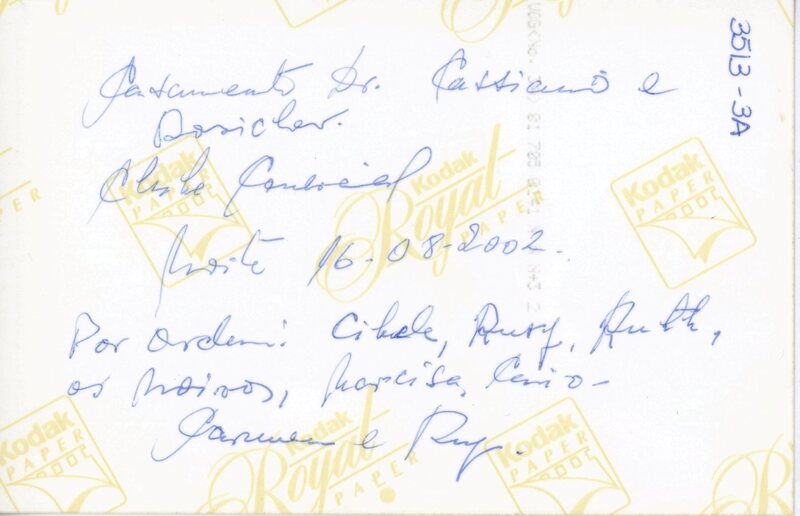 Casamento Dr. Cassiano e
Clube Comercial
Noite 16-08-2002.
Por ordem: Cibele, Rusy, Ruth,
os noivos, Narcisa, Caio-
Carmen e Ruy.
3513-3A
Kodak
PAPER
Kodak
Royal
PAPER
Kodak
PAPER
Kodak
PAPER
Kodak
Royal
PAPER
Kodak
PAPER